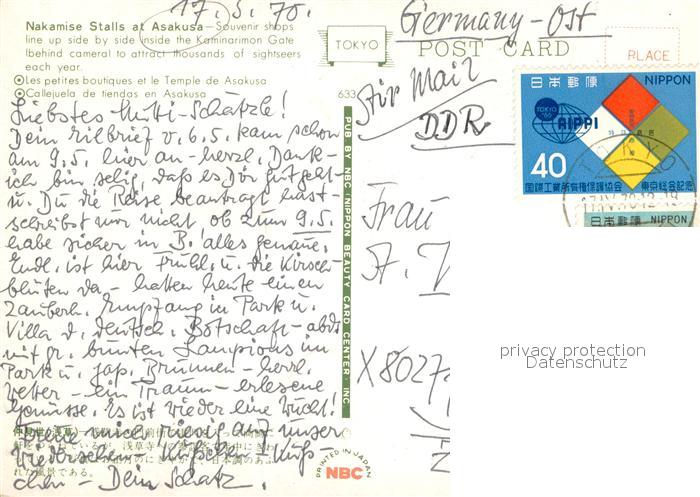 17.5.70.
Nakamise Stalls at Asakusa—Souvenir shops
line up side by side inside the Kaminarimon Gate
(behind camera) to attract thousands of sightseers
each year.
Les petites boutiques et le Temple de Asakusa
Callejuela de tiendas en Asakusa
633
Liebstes Mutti-Schätzle!
Dein Eilbrief v. 6.5. kam schon
am 9.5. hier an - herzl. Dank -
ich bin selig, daß es Dir gut geht
u. Du die Reise beantragt hast -
schreibst nur nicht ob zum 9.5.
habe sicher in B. alles genaue.
Endl. ist hier Frühl. u. die Kirsch-
blüten da - hatten heute einen
zauberh. Empfang in Park u.
Villa d. deutsch. Botschaft - abds
mit gr. bunten Lampions im
Park u. jap. Brunnen - herrl.
Wetter - ein Traum - erlesene
Genüsse. Es ist wieder eine Wucht!
Freue mich riesig auf unser
Wiedersehen - Küßchen - Küß-
chen - Dein Schatz.
PUB BY NBC (NIPPON BEAUTY CARD CENTER) INC.
PRINTED IN JAPAN
NBC
TOKYO
POST CARD
PLACE
Germany - Ost
Air Mail
DDR
Frau
A.
X8027
日本郵便 NIPPON
TOKYO
AIPPI
40
国際工業所有権保護協会 東京総会記念
日本郵便 NIPPON
privacy protection
Datenschutz